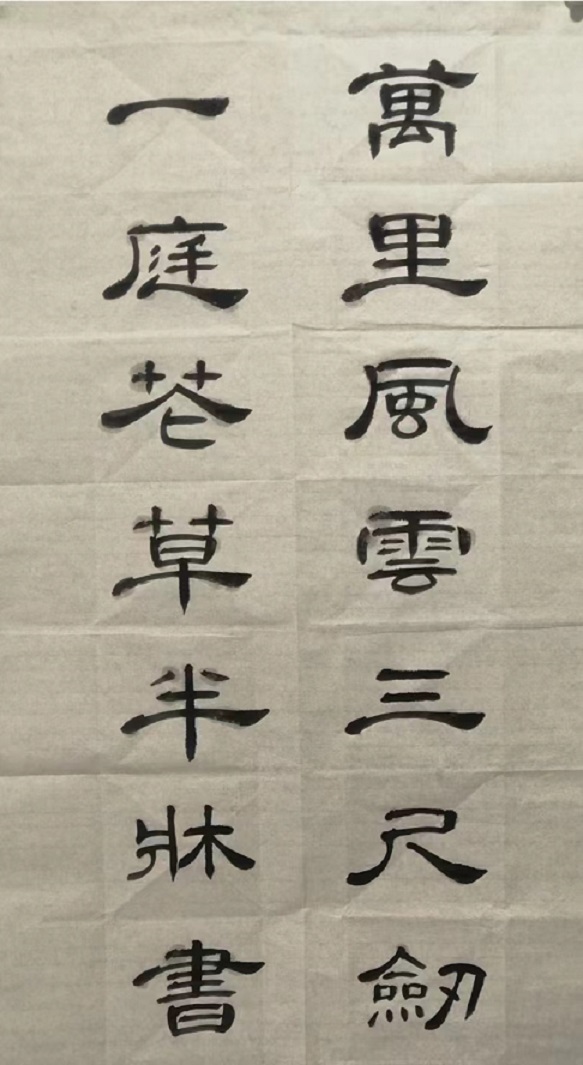 萬里風雲三尺劔
一庭花草半牀書